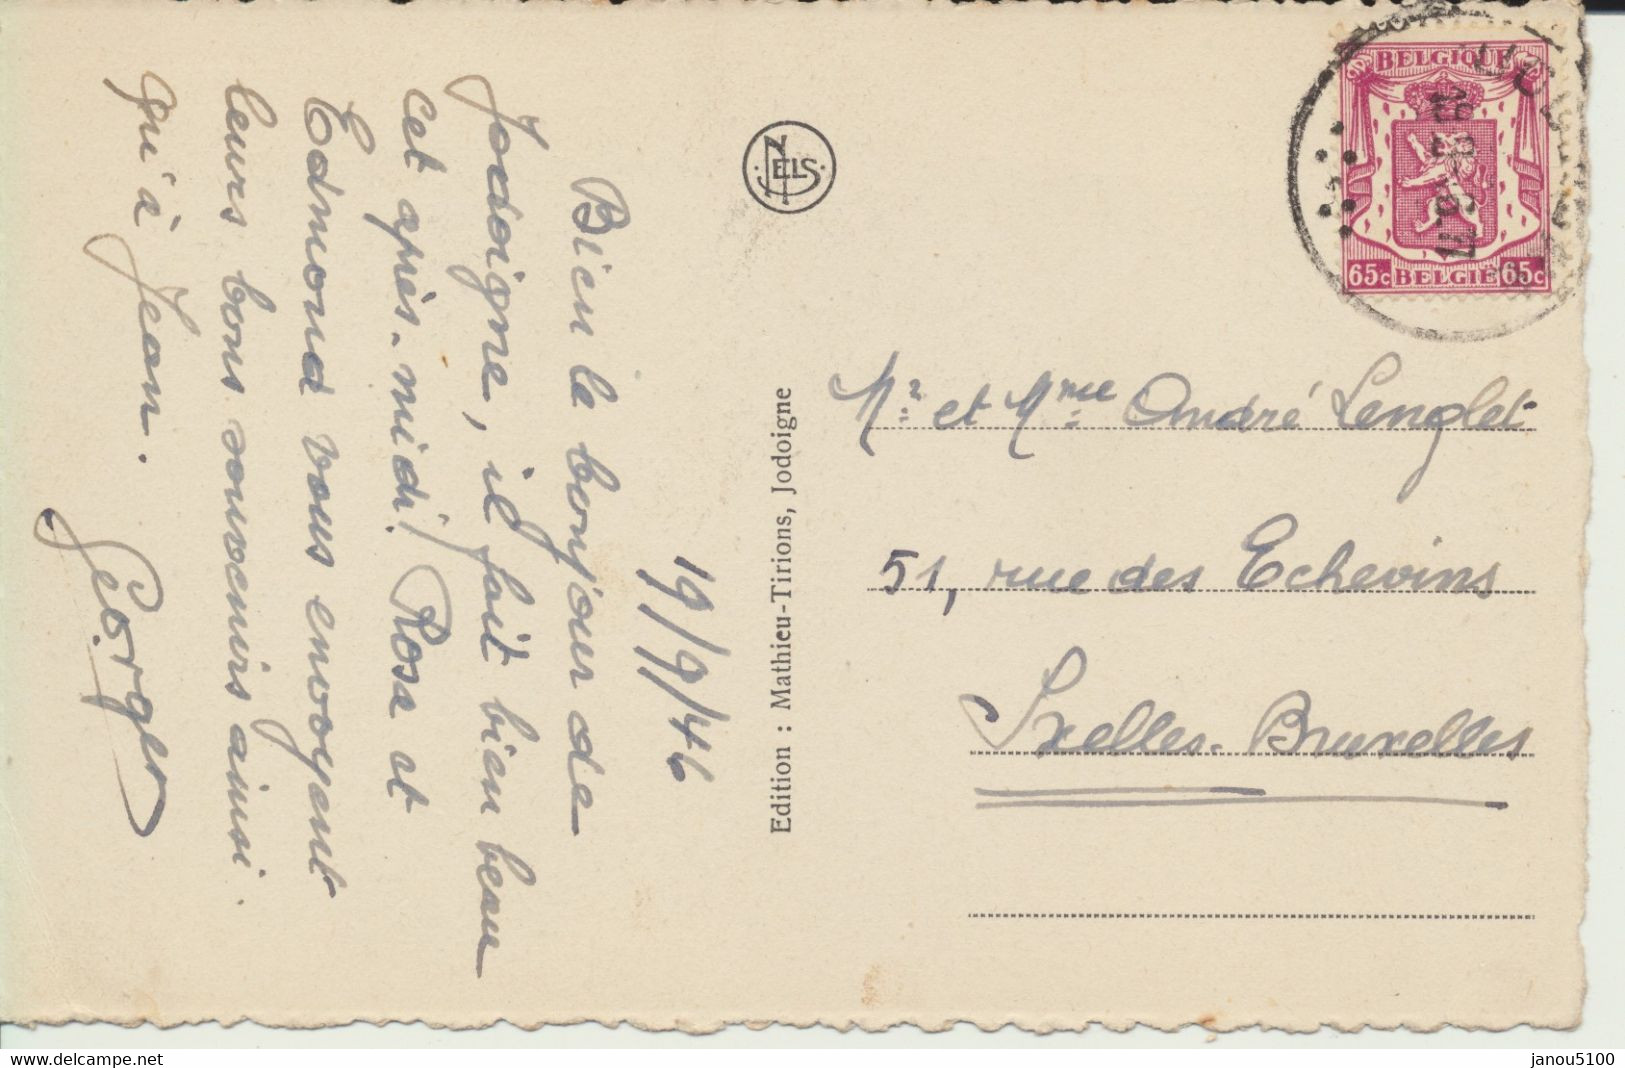 19/9/46
Bien le bonjour de
Jodoigne, il fait bien beau
cet après-midi! Rose et
Edmond vous envoyent
leurs bons souvenirs ainsi
qu'à Jean.
Georges
NELS
Edition : Mathieu-Tirions, Jodoigne
BELGIQUE
65c BELGIË 65c
Mr et Mme André Lenglet
51, rue des Echevins
Ixelles-Bruxelles
www.delcampe.net
janou5100